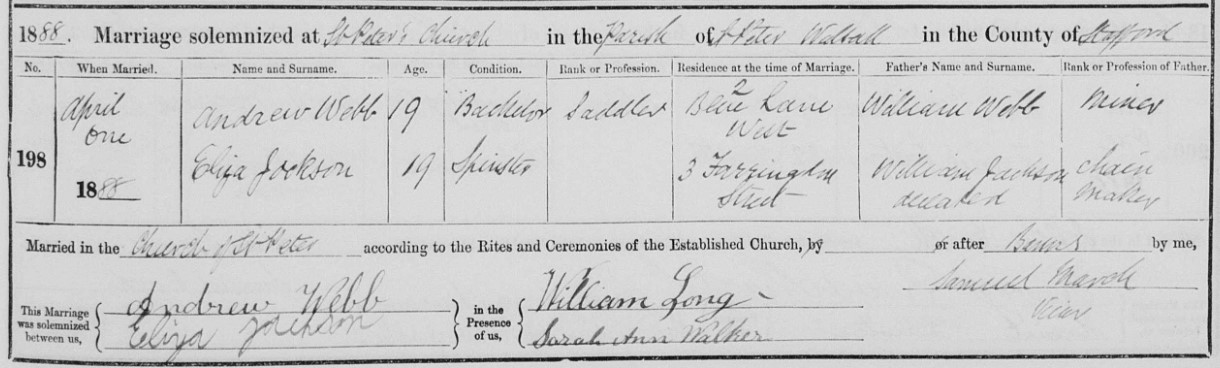 1888. Marriage solemnized at St Peter's Church in the Parish of St Peter Walsall in the County of Stafford
No. When Married. Name and Surname. Age. Condition. Rank or Profession. Residence at the time of Marriage. Father's Name and Surname. Rank or Profession of Father.
198 April one 1888 Andrew Webb 19 Bachelor Saddler 2 Blue Lane West William Webb Miner
Eliza Jackson 19 Spinster 3 Farrington Street William Jackson deceased Chain Maker
Married in the Church of St Peter according to the Rites and Ceremonies of the Established Church, by or after Banns by me,
This Marriage was solemnized between us, Andrew Webb in the Presence of us, William Long Samuel March
Eliza Jackson Sarah Ann Walker Vicar